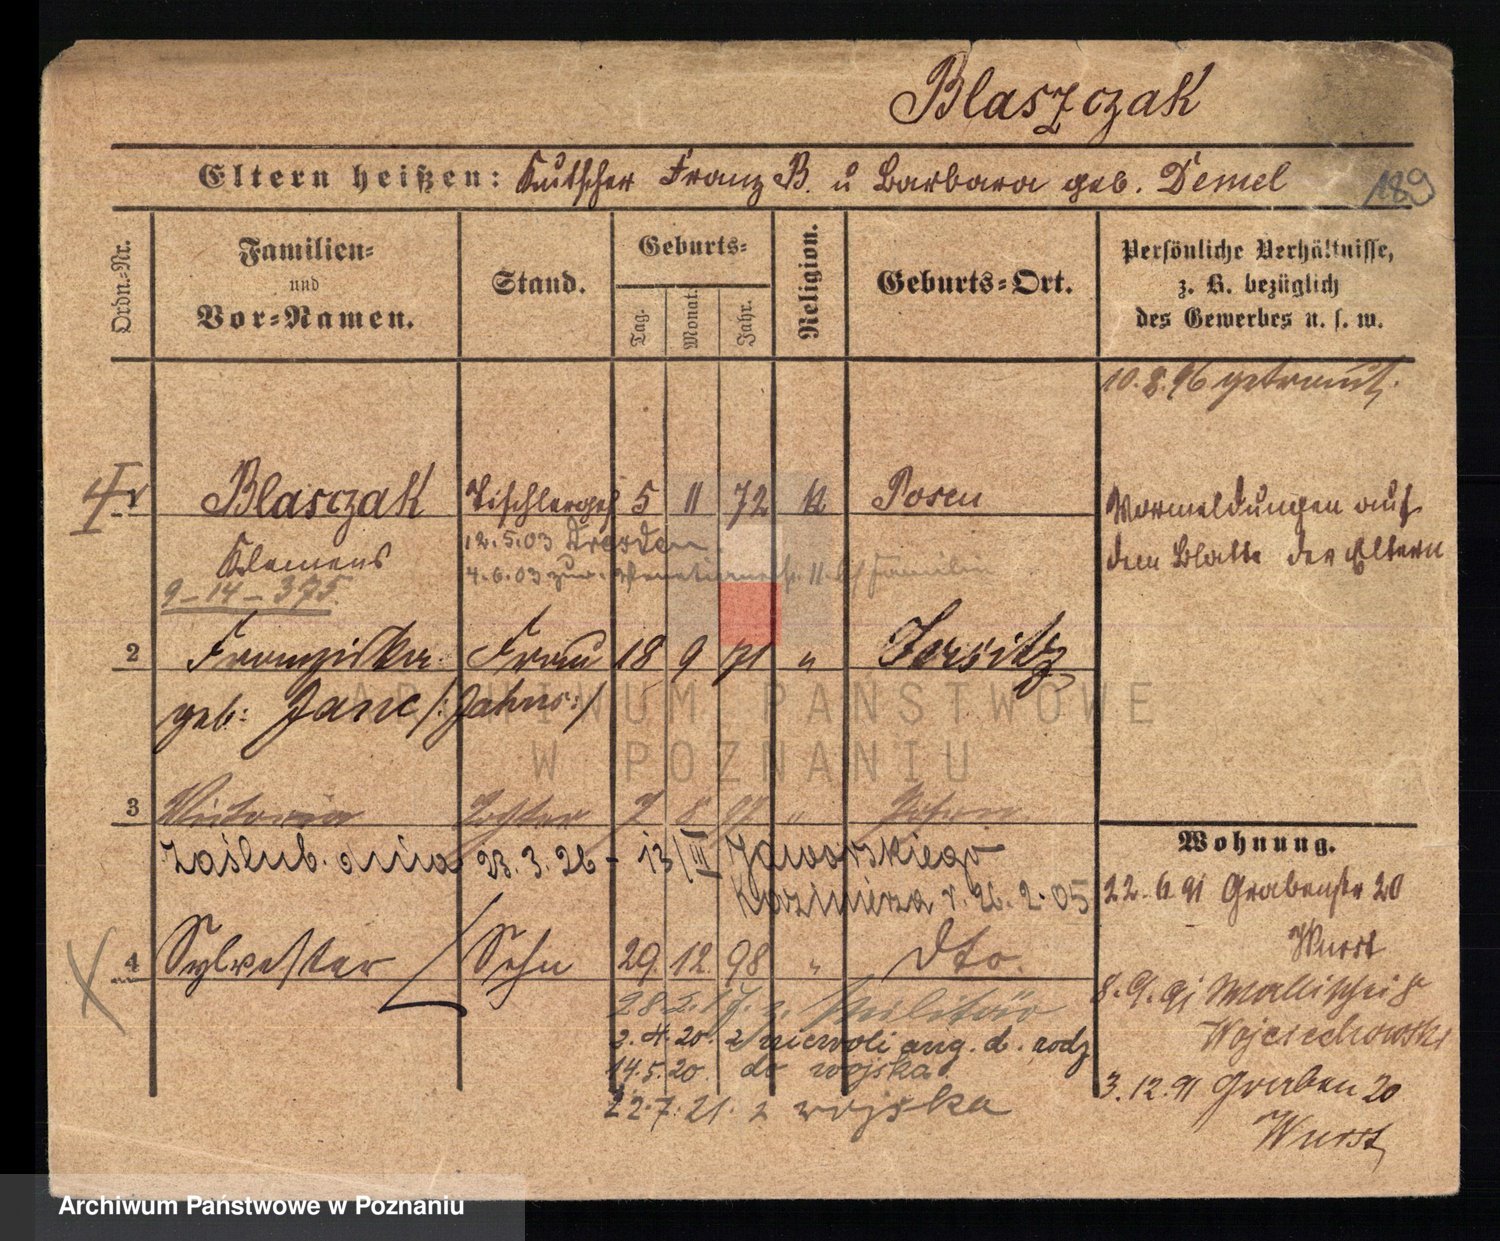 Blaszczak
Eltern heißen: Kutscher Franz B. u Barbara geb. Demel
189
Ordn.-Nr.
Familien-
und
Vor-Namen.
Stand.
Geburts-
Tag.
Monat.
Jahr.
Religion.
Geburts-Ort.
Persönliche Verhältnisse,
z. B. bezüglich
des Gewerbes u. s. w.
10.8.96 getraut.
1 Blasczak Tischlerges 5 11 72 k Posen
Klemens
12.5.03 Dresden.
4.6.03 zur. 11 Familie
9-14-375
Vormeldungen auf
dem Blatte der Eltern
2 Franziska Frau 18 9 71 " Jersitz
geb: Janc /: Jahns :/
ARCHIWUM PAŃSTWOWE
W POZNANIU
3 Victoria Tochter 7 8 07 " Posen
zaślub. 23.3.26 - 13/III Jaworskiego
Kazimierza r. 26.2.05
4 Sylvester Sohn 29. 12. 98 " dto.
28.2.17. z. Militär
2.4.20. z niewoli ang. d. rodz
14.5.20. do wojska
22.7.21. z wojska
Wohnung.
22.6.91 Grabenstr 20
Wurst
8.9.91 Wallischei 8
Wojciechowski
3.12.91 Graben 20
Wurst
Archiwum Państwowe w Poznaniu